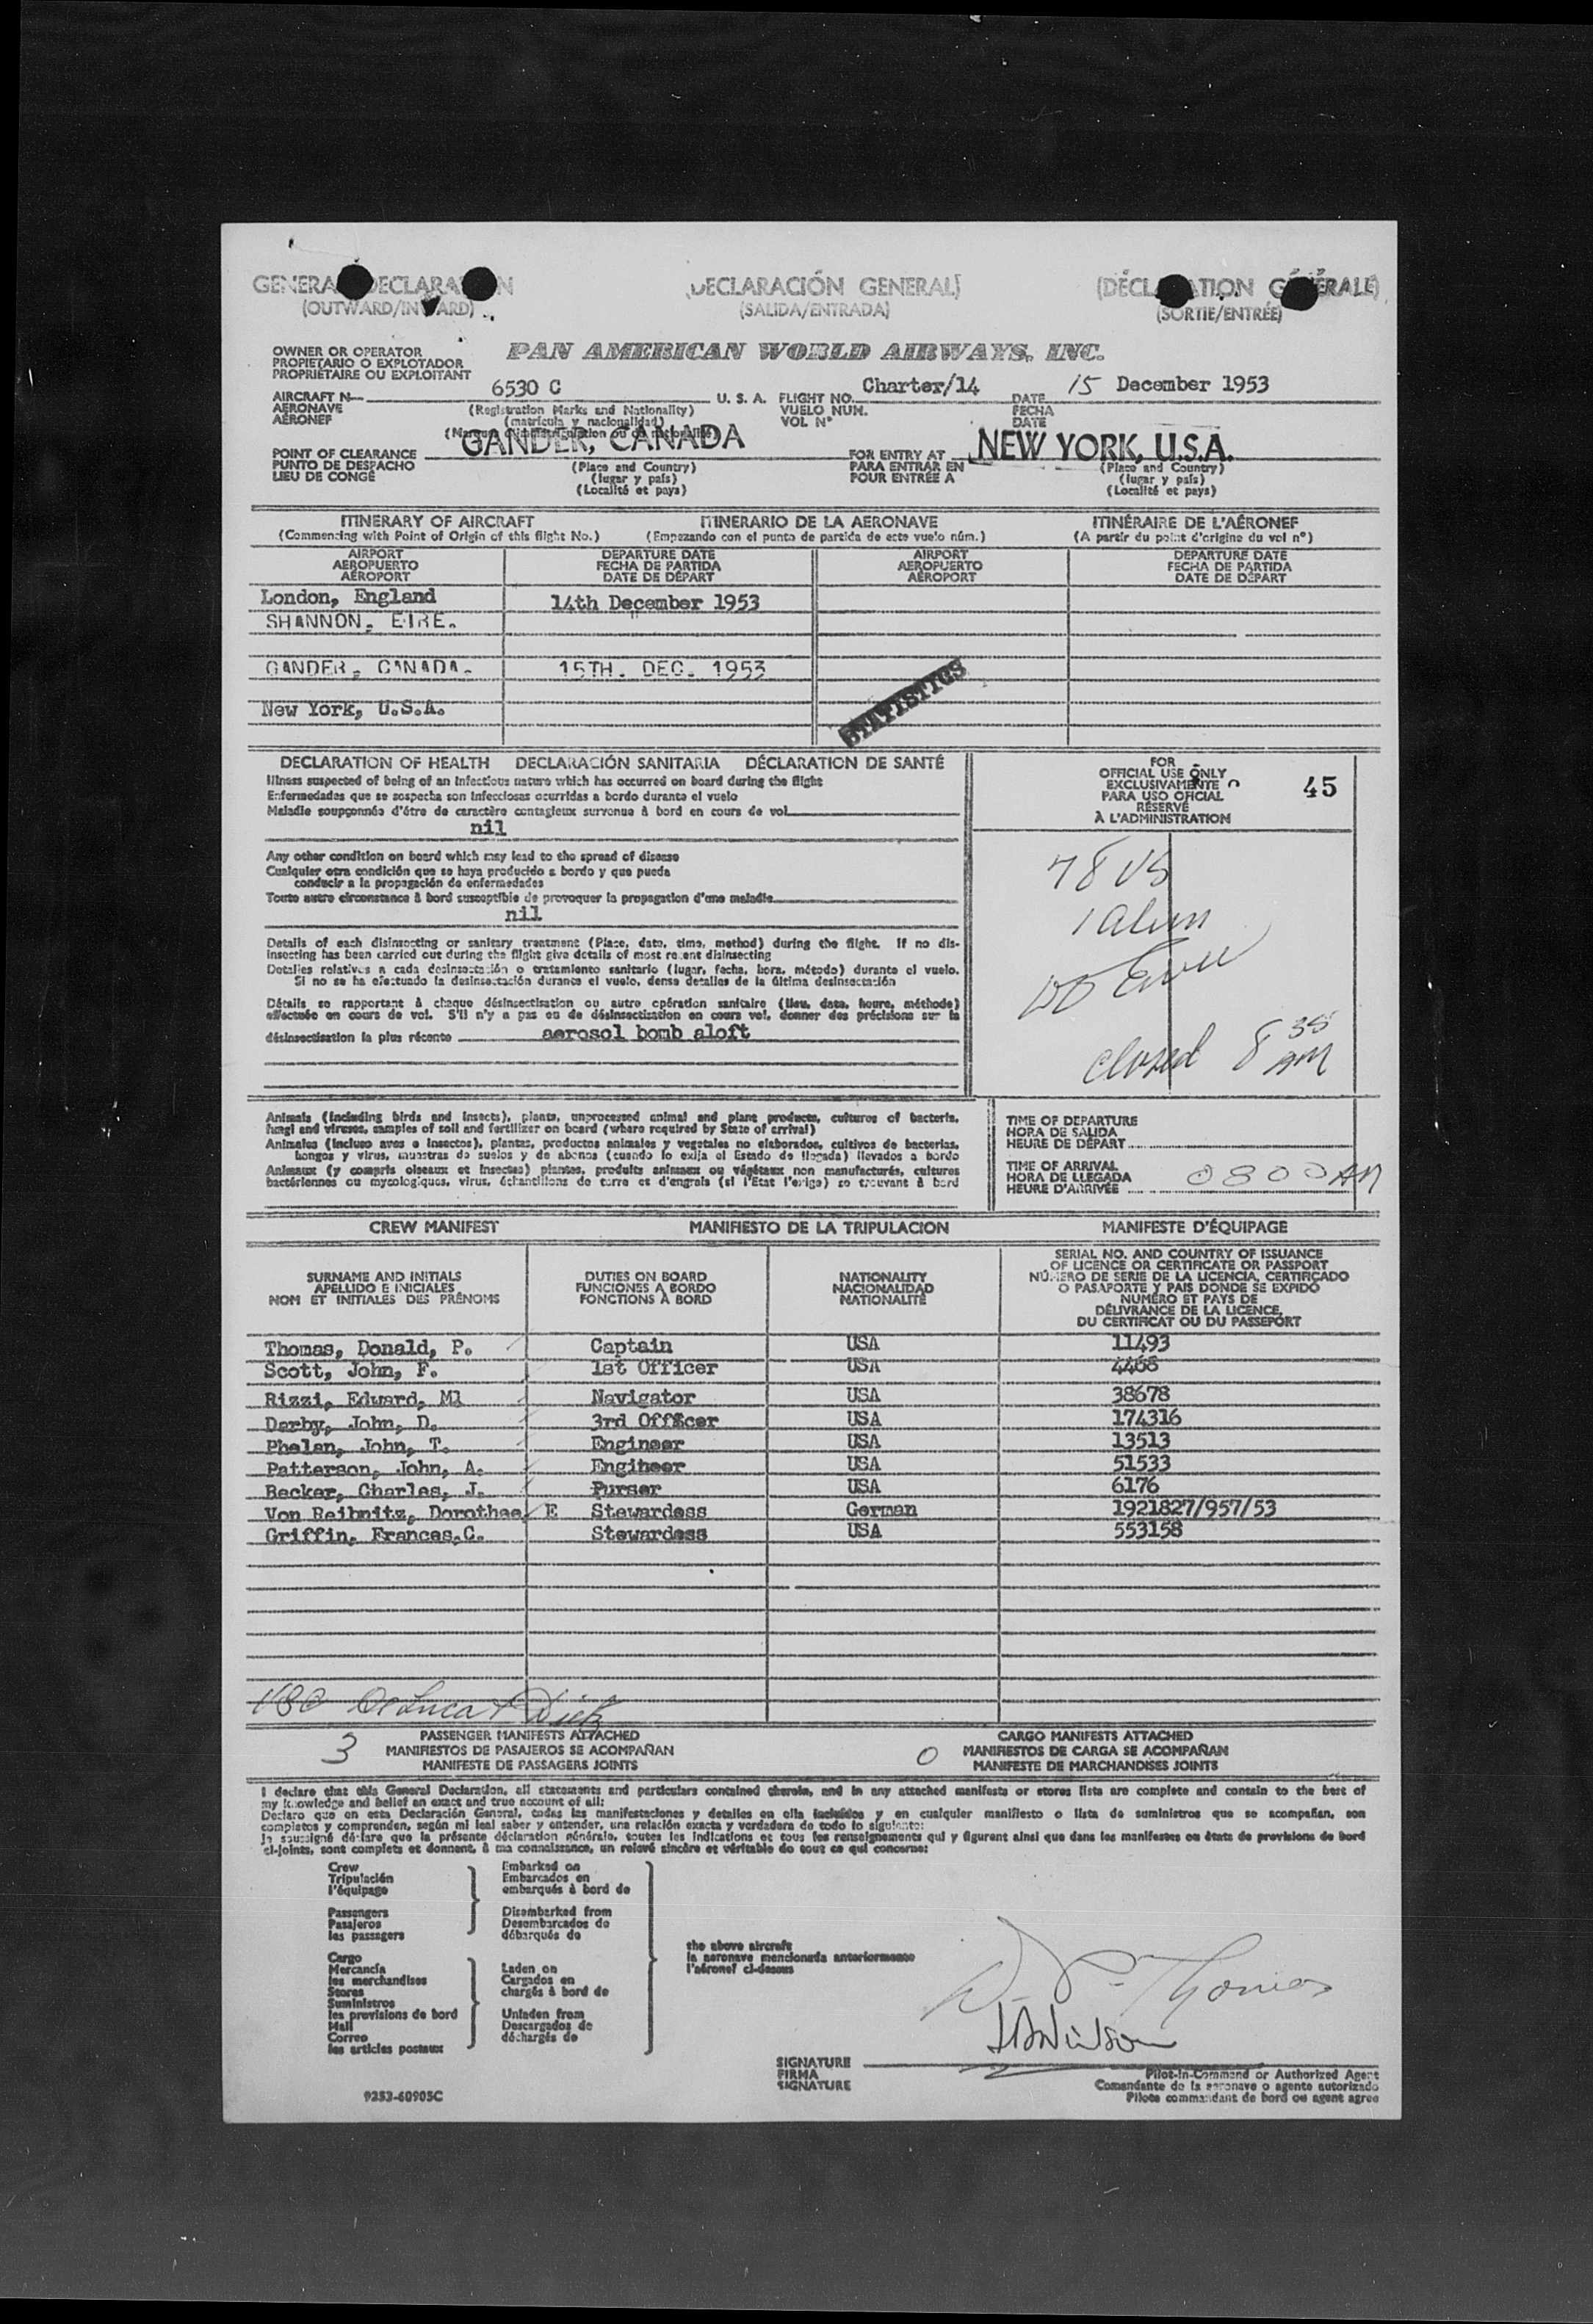 GENERAL DECLARATION (DECLARACIÓN GENERAL) (DÉCLARATION GÉNÉRALE)
(OUTWARD/INWARD) (SALIDA/ENTRADA) (SORTIE/ENTRÉE)
OWNER OR OPERATOR
PROPIETARIO O EXPLOTADOR
PROPRIÉTAIRE OU EXPLOITANT
PAN AMERICAN WORLD AIRWAYS, INC.
AIRCRAFT N— 6530 C U. S. A. FLIGHT NO. Charter/14 DATE 15 December 1953
AERONAVE (Registration Marks and Nationality) VUELO NUM. FECHA
AÉRONEF (matrícula y nacionalidad) VOL N° DATE
POINT OF CLEARANCE GANDER, CANADA FOR ENTRY AT NEW YORK, U.S.A.
PUNTO DE DESPACHO (Place and Country) PARA ENTRAR EN (Place and Country)
LIEU DE CONGÉ (lugar y país) POUR ENTRÉE A (lugar y país)
(Localité et pays) (Localité et pays)
ITINERARY OF AIRCRAFT ITINERARIO DE LA AERONAVE ITINÉRAIRE DE L'AÉRONEF
(Commencing with Point of Origin of this flight No.) (Empezando con el punto de partida de este vuelo núm.) (A partir du point d'origine du vol n°)
AIRPORT DEPARTURE DATE AIRPORT DEPARTURE DATE
AEROPUERTO FECHA DE PARTIDA AEROPUERTO FECHA DE PARTIDA
AÉROPORT DATE DE DÉPART AÉROPORT DATE DE DÉPART
London, England 14th December 1953
SHANNON, EIRE. "
GANDER, CANADA. 15TH. DEC. 1953
STATISTICS
New York, U.S.A.
DECLARATION OF HEALTH DECLARACIÓN SANITARIA DÉCLARATION DE SANTÉ
Illness suspected of being of an infectious nature which has occurred on board during the flight
Enfermedades que se sospecha son infecciosas ocurridas a bordo durante el vuelo
Maladie soupçonnée d'être de caractère contagieux survenue à bord en cours de vol
nil
Any other condition on board which may lead to the spread of disease
Cualquier otra condición que se haya producido a bordo y que pueda
conducir a la propagación de enfermedades
Toute autre circonstance à bord susceptible de provoquer la propagation d'une maladie
nil
Details of each disinsecting or sanitary treatment (Place, date, time, method) during the flight. If no dis-
insecting has been carried out during the flight give details of most recent disinsecting
Detalles relativos a cada desinsectación o tratamiento sanitario (lugar, fecha, hora, método) durante el vuelo.
Si no se ha efectuado la desinsectación durante el vuelo, dense detalles de la última desinsectación
Détails se rapportant à chaque désinsectisation ou autre opération sanitaire (lieu, date, heure, méthode)
effectuée en cours de vol. S'il n'y a pas eu de désinsectisation en cours vol, donner des précisions sur la
désinsectisation la plus récente aerosol bomb aloft
FOR
OFFICIAL USE ONLY
EXCLUSIVAMENTE
PARA USO OFICIAL
RÉSERVÉ
À L'ADMINISTRATION
45
78 US
1 alien
closed 8 35 AM
Animals (including birds and insects), plants, unprocessed animal and plant products, cultures of bacteria,
fungi and viruses, samples of soil and fertilizer on board (where required by State of arrival)
Animales (incluso aves e insectos), plantas, productos animales y vegetales no elaborados, cultivos de bacterias,
hongos y virus, muestras de suelos y de abonos (cuando lo exija el Estado de llegada) llevados a bordo
Animaux (y compris oiseaux et insectes) plantes, produits animaux ou végétaux non manufacturés, cultures
bactériennes ou mycologiques, virus, échantillons de terre et d'engrais (si l'Etat l'exige) se trouvant à bord
TIME OF DEPARTURE
HORA DE SALIDA
HEURE DE DÉPART
TIME OF ARRIVAL
HORA DE LLEGADA 0800 AM
HEURE D'ARRIVÉE
CREW MANIFEST MANIFIESTO DE LA TRIPULACION MANIFESTE D'ÉQUIPAGE
SURNAME AND INITIALS
APELLIDO E INICIALES
NOM ET INITIALES DES PRÉNOMS
DUTIES ON BOARD
FUNCIONES A BORDO
FONCTIONS À BORD
NATIONALITY
NACIONALIDAD
NATIONALITÉ
SERIAL NO. AND COUNTRY OF ISSUANCE
OF LICENCE OR CERTIFICATE OR PASSPORT
NÚMERO DE SERIE DE LA LICENCIA, CERTIFICADO
O PASAPORTE Y PAIS DONDE SE EXPIDO
NUMÉRO ET PAYS DE
DÉLIVRANCE DE LA LICENCE,
DU CERTIFICAT OU DU PASSEPORT
Thomas, Donald, P. Captain USA 11493
Scott, John, F. 1st Officer USA 4468
Rizzi, Edward, Ml Navigator USA 38678
Darby, John, D. 3rd Officer USA 174316
Phelan, John, T. Engineer USA 13513
Patterson, John, A. Engineer USA 51533
Becker, Charles, J. Purser USA 6176
Von Reibnitz, Dorothea E Stewardess German 1921827/957/53
Griffin, Frances,C. Stewardess USA 553158
3 PASSENGER MANIFESTS ATTACHED 0 CARGO MANIFESTS ATTACHED
MANIFIESTOS DE PASAJEROS SE ACOMPAÑAN MANIFIESTOS DE CARGA SE ACOMPAÑAN
MANIFESTE DE PASSAGERS JOINTS MANIFESTE DE MARCHANDISES JOINTS
I declare that this General Declaration, all statements and particulars contained therein, and in any attached manifests or stores lists are complete and contain to the best of
my knowledge and belief an exact and true account of all:
Declaro que en esta Declaración General, todas las manifestaciones y detalles en ella incluidos y en cualquier manifiesto o lista de suministros que se acompañan, son
completos y comprenden, según mi leal saber y entender, una relación exacta y verdadera de todo lo siguiente:
Je soussigné déclare que la présente déclaration générale, toutes les indications et tous les renseignements qui y figurent ainsi que dans les manifestes ou états de provisions de bord
ci-joints, sont complets et donnent, à ma connaissance, un relevé sincère et véritable de tout ce qui concerne:
Crew
Tripulación
l'équipage
Passengers
Pasajeros
les passagers
Cargo
Mercancía
les merchandises
Stores
Suministros
les provisions de bord
Mail
Correo
les articles postaux
Embarked on
Embarcados en
embarqués à bord de
Disembarked from
Desembarcados de
débarqués de
Laden on
Cargados en
chargés à bord de
Unladen from
Descargados de
déchargés de
the above aircraft
la aeronave mencionada anteriormente
l'aéronef ci-dessus
D. P. Thomas
SIGNATURE
FIRMA
SIGNATURE
Pilot-in-Command or Authorized Agent
Comandante de la aeronave o agente autorizado
Pilote commandant de bord ou agent agree
9253-60905C